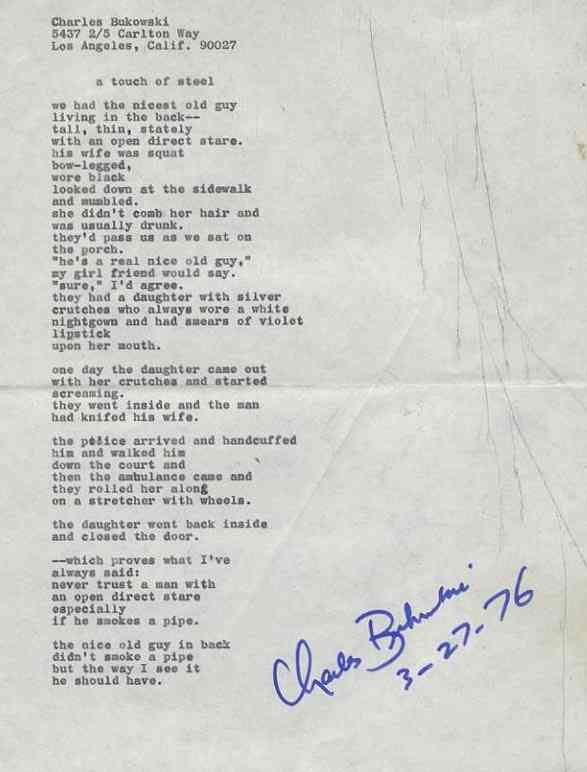 Charles Bukowski
5437 2/5 Carlton Way
Los Angeles, Calif. 90027
a touch of steel
we had the nicest old guy
living in the back--
tall, thin, stately
with an open direct stare.
his wife was squat
bow-legged,
wore black
looked down at the sidewalk
and mumbled.
she didn't comb her hair and
was usually drunk.
they'd pass us as we sat on
the porch.
"he's a real nice old guy,"
my girl friend would say.
"sure," I'd agree.
they had a daughter with silver
crutches who always wore a white
nightgown and had smears of violet
lipstick
upon her mouth.
one day the daughter came out
with her crutches and started
screaming.
they went inside and the man
had knifed his wife.
the police arrived and handcuffed
him and walked him
down the court and
then the ambulance came and
they rolled her along
on a stretcher with wheels.
the daughter went back inside
and closed the door.
--which proves what I've
always said:
never trust a man with
an open direct stare
especially
if he smokes a pipe.
the nice old guy in back
didn't smoke a pipe
but the way I see it
he should have.
Charles Bukowski
3-27-76